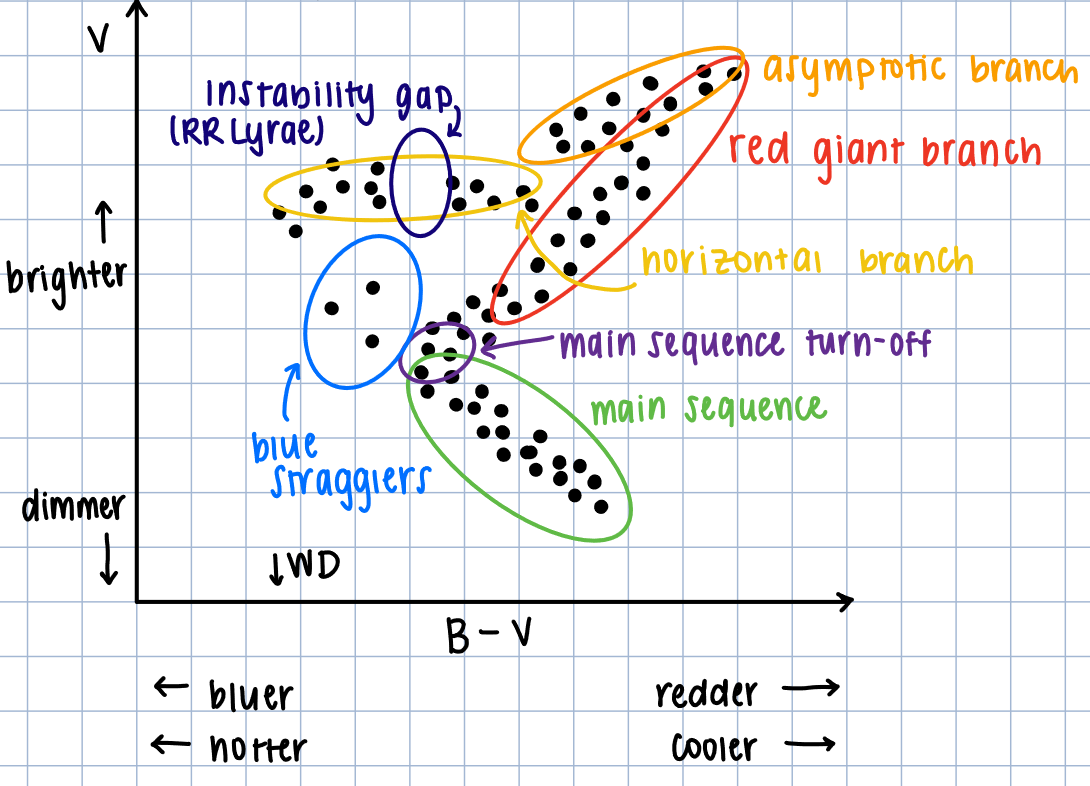 V
Instability gap
(RR Lyrae)
asymptotic branch
red giant branch
horizontal branch
brighter
main sequence turn-off
main sequence
blue
stragglers
dimmer
↓WD
B-V
← bluer
redder →
← hotter
cooler →